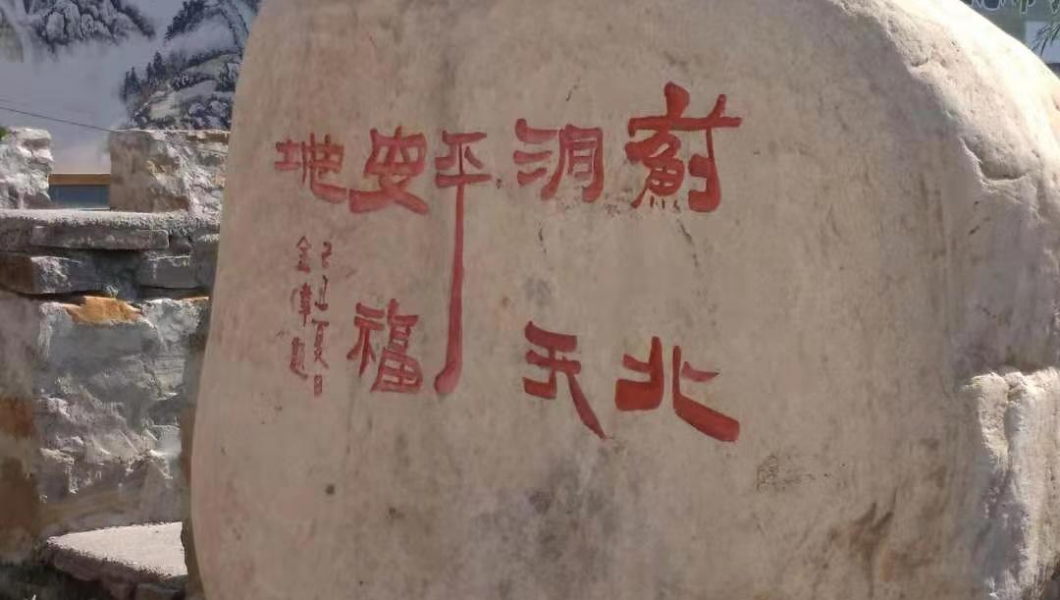 薊北
洞天
平
安福
地
己丑夏日
金偉題